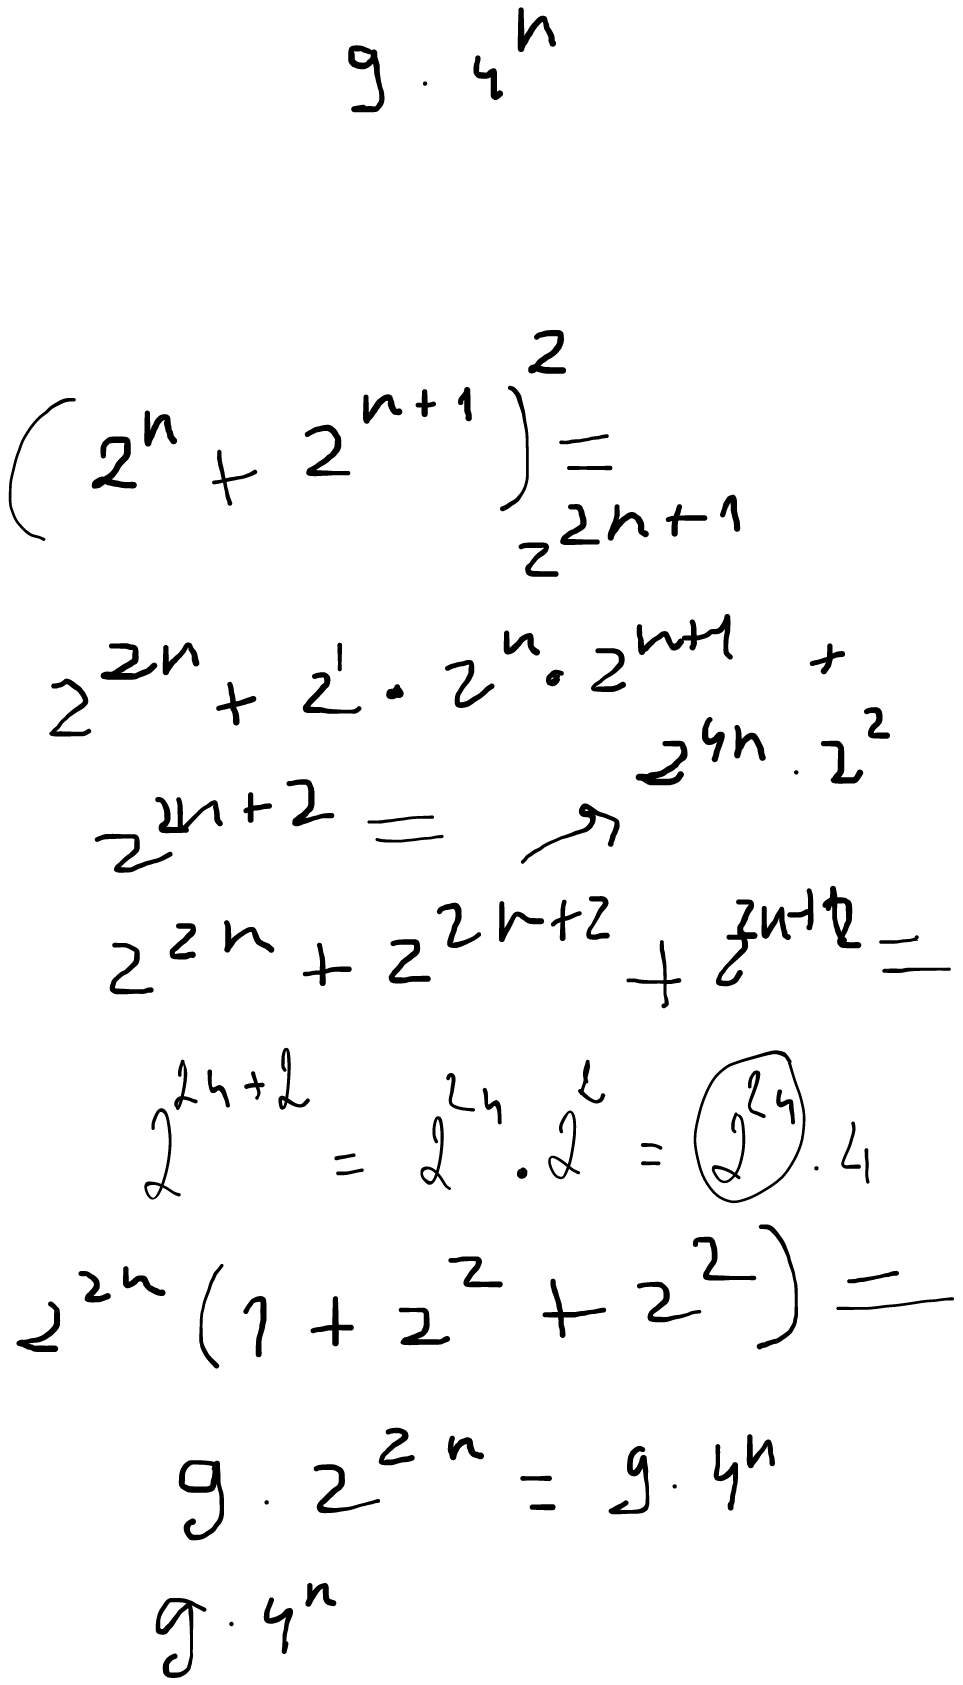 9 · 4^n
(2^n + 2^{n+1})^2 =
2^{2n+1}
2^{2n} + 2^1 · 2^n · 2^{n+1} +
2^{4n} · 2^2
2^{2n+2} =
2^{2n} + 2^{2n+2} + 2^{2n+2} =
2^{2n+2} = 2^{2n} · 2^2 = 2^{2n} · 4
2^{2n} (1 + 2^2 + 2^2) =
9 · 2^{2n} = 9 · 4^n
9 · 4^n